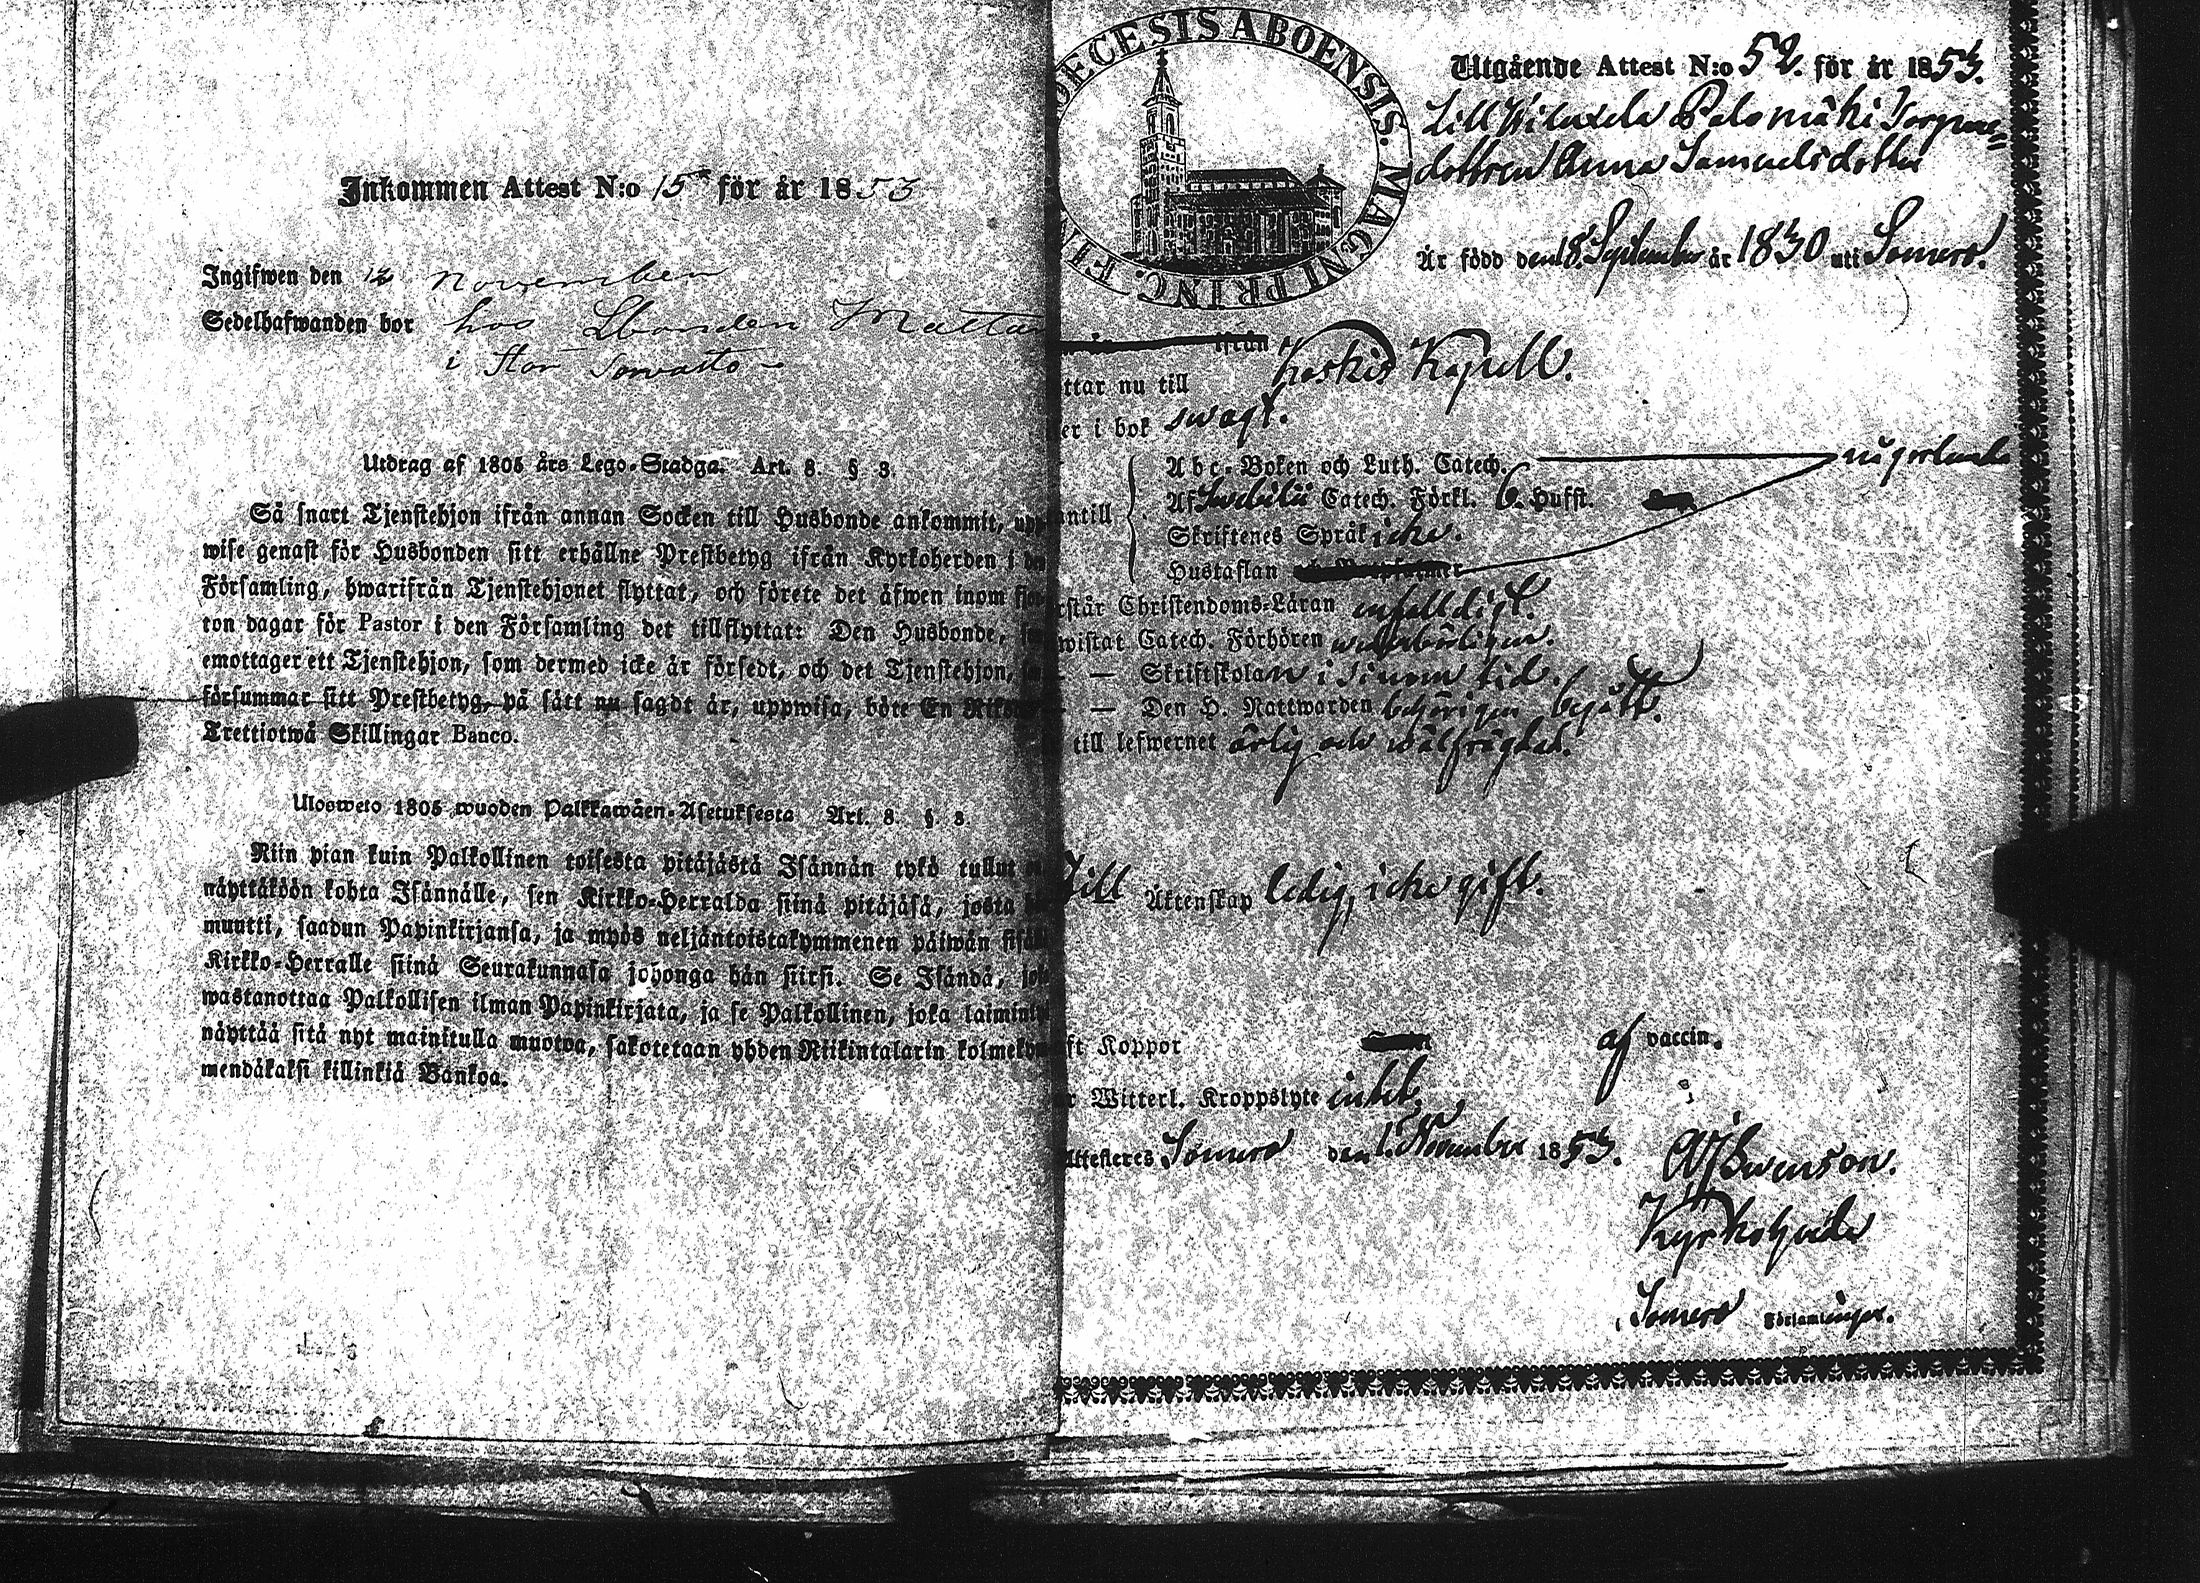 Inkommen Attest N:o 15 för år 1853
Ingifwen den 12 November
Sedelhafwanden bor hos Lbonden Mattas
i Stor Sorvasto
Utdrag af 1805 års Lego-Stadga. Art. 8. § 8.
Så snart Tjenstehjon ifrån annan Socken till Husbonde ankommit, upp-
wise genast för Husbonden sitt erhållne Prestbetyg ifrån Kyrkoherden i den
Församling, hwarifrån Tjenstehjonet flyttat, och förete det äfwen inom fjor-
ton dagar för Pastor i den Församling det tillflyttat: Den Husbonde,
emottager ett Tjenstehjon, som dermed icke är försedt, och det Tjenstehjon,
försummar sitt Prestbetyg, på sätt nu sagdt är, uppwisa, böte En Riks
Trettiotwå Skillingar Banco.
Ulosweto 1805 wuoden Palkkawäen-Asetuksesta Art. 8. §. 8.
Niin pian kuin Palkollinen toisesta pitäjästä Isännän tykö tullut
näyttäköön kohta Isännälle, sen Kirkko-Herralda siinä pitäjäsä, josta
muutti, saadun Papinkirjansa, ja myös neljäntoistakymmenen päiwän sisä
Kirkko-Herralle siinä Seurakunnasa johonga hän siirsi. Se Isändä, jok
wastanottaa Palkollisen ilman Papinkirjata, ja se Palkollinen, joka laimin
näyttää sitä nyt mainitulla muotoa, sakotetaan yhden Riikintalarin kolmeky
mendäkaksi killinkiä Bankoa.
OECESIS ABOENSIS. MAGNI PRINC. FIN
Utgående Attest N:o 52. för år 1853.
Lill Wiluxela Palomäki Torpare
dottren Anna Samuelsdotter
Är född den 18 September år 1830 uti Somero.
ifrån
ttar nu till Koskis Kapell.
er i bok swagt.
Abc-Boken och Luth. Catech. någorlunda
antill Af Swebilii Catech. Förkl. 6. Hufst.
Skriftenes Språk icke.
Hustaflan
rstår Christendoms-Läran enfaldigt.
wistat Catech. Förhören wederbörligen.
— Skriftskolan i sinom tid.
— Den H. Nattwarden behörigen begått.
till lefwernet ärlig och wälfrägdad.
Till Äktenskap ledig, icke gift.
ft Koppor af vaccin.
r Witterl. Kroppslyte intet.
Attesteres Somero den 1. November 1853.
Swenson.
Kyrkoherde
i Somero Församlingar.